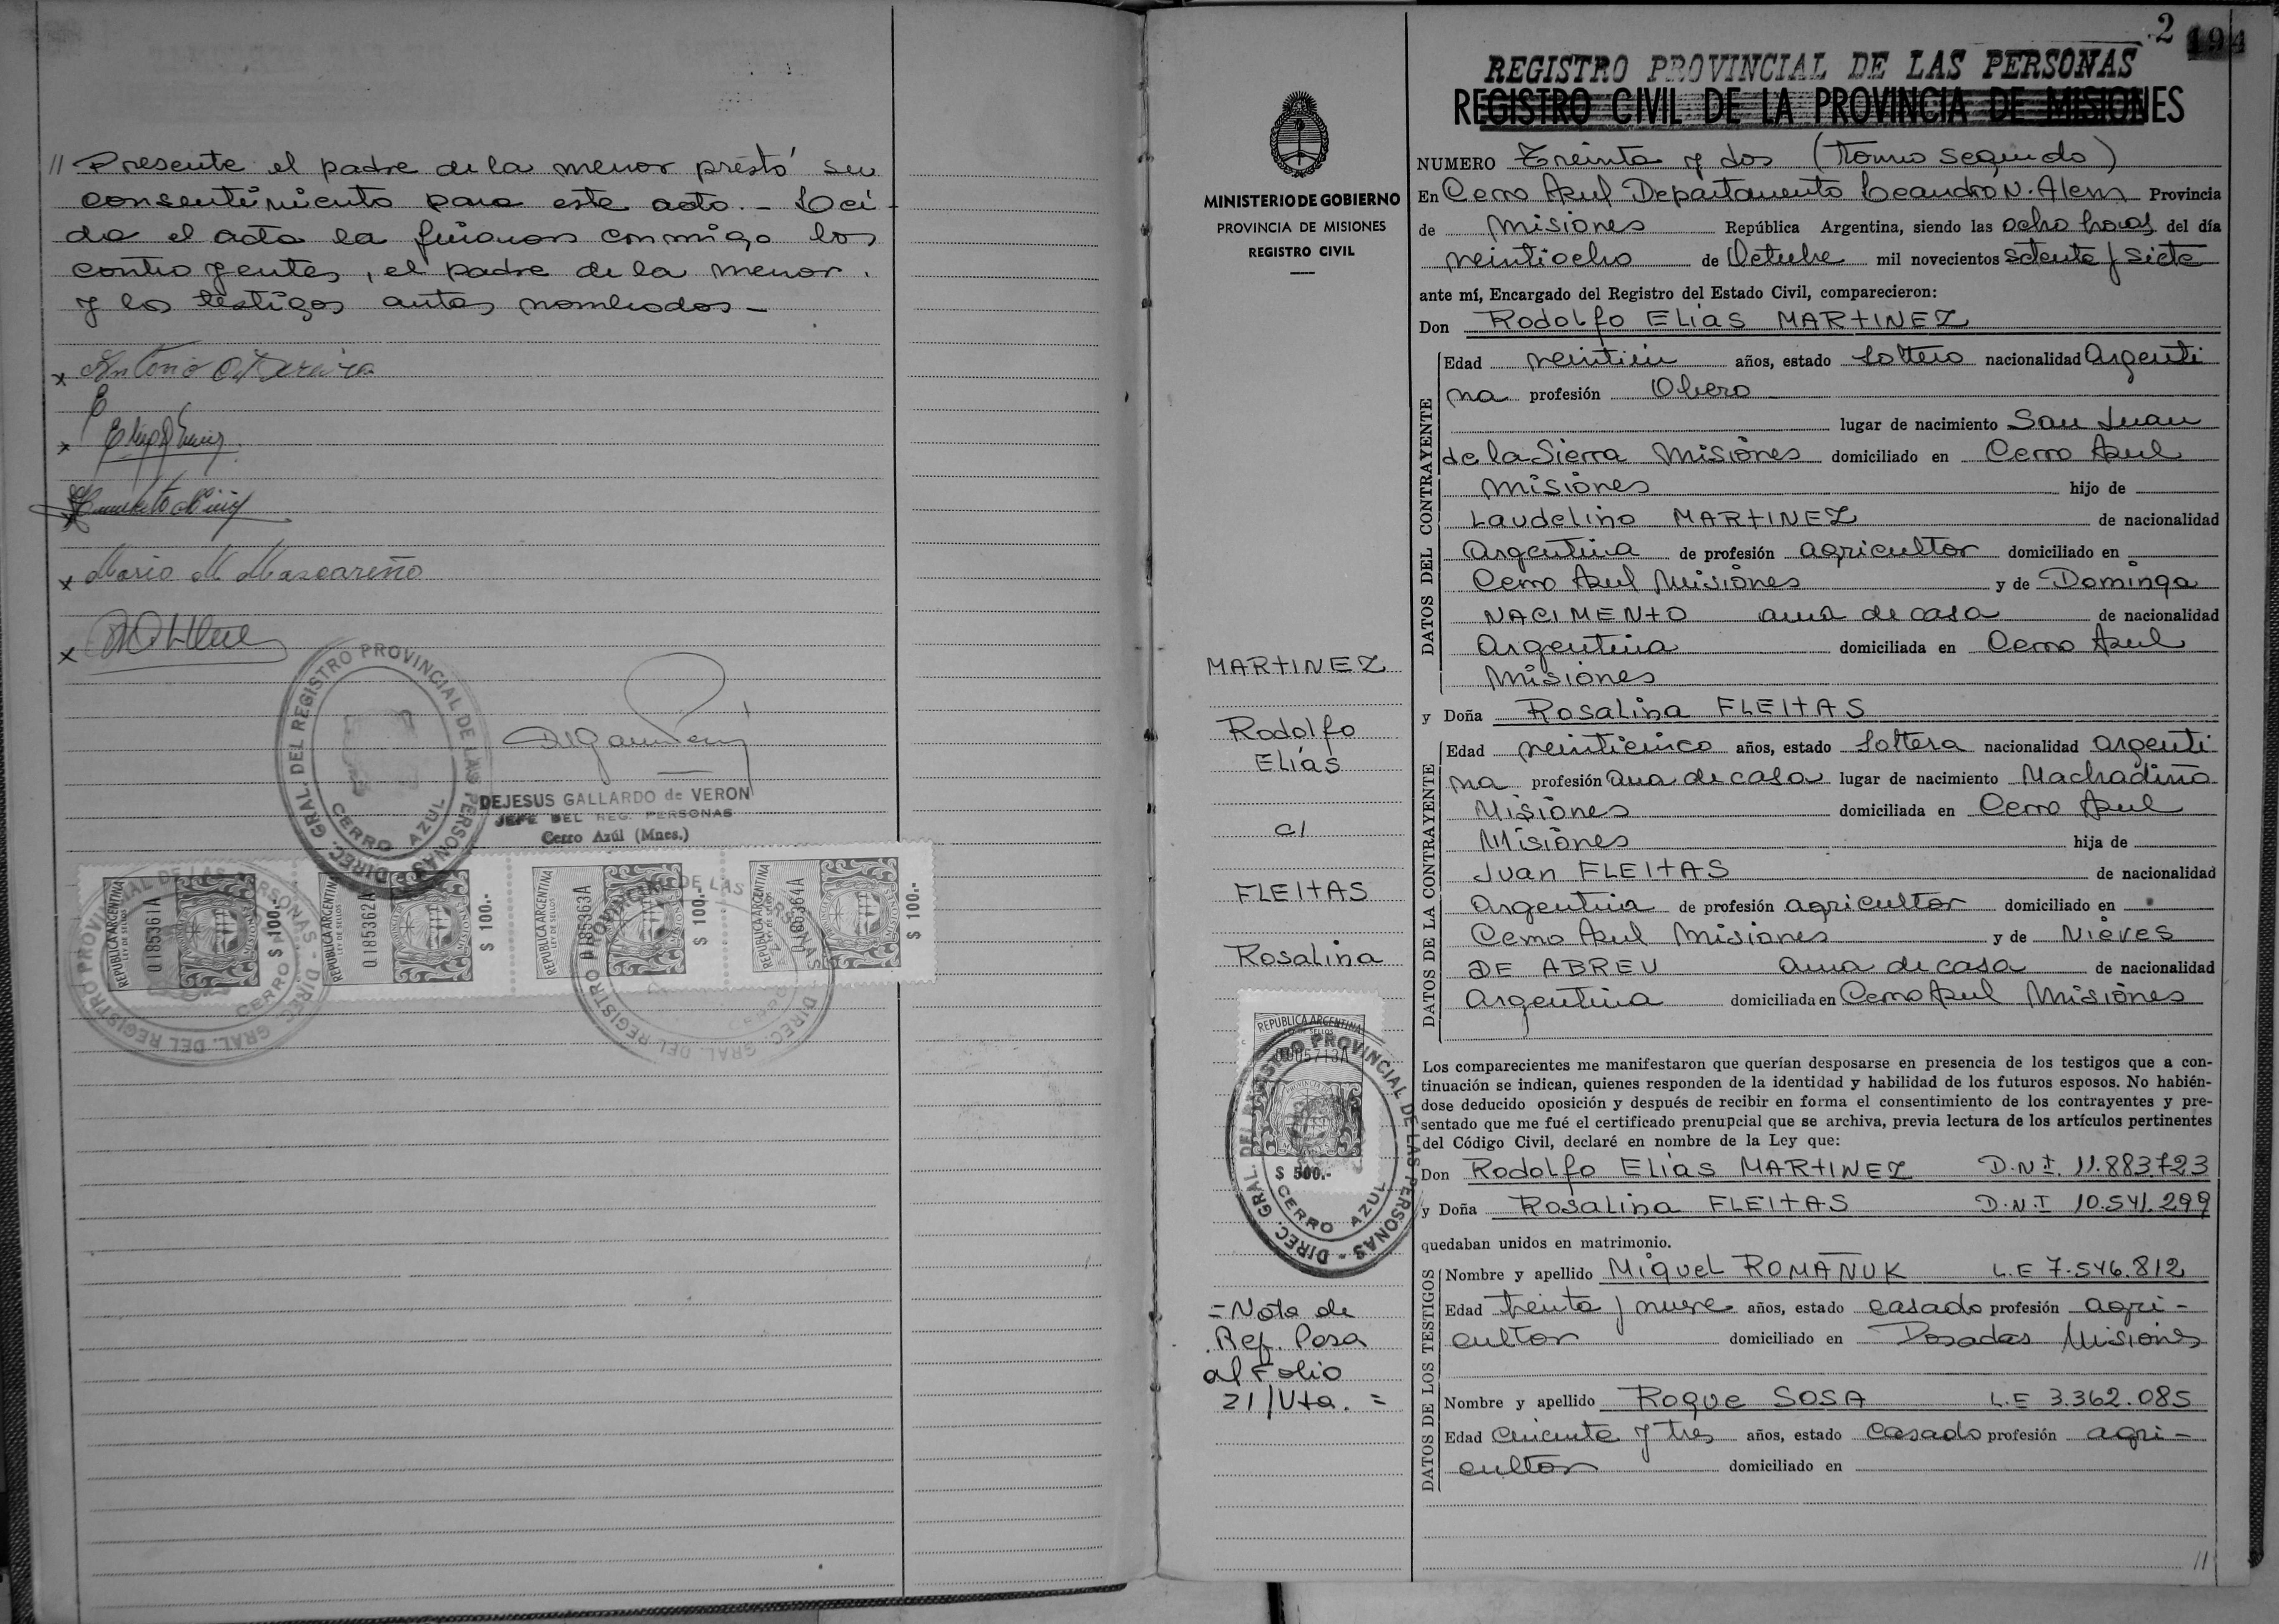 // Presente el padre de la menor prestó su
consentimiento para este acto.- Leí-
da el acta la firmaron conmigo los
contrayentes, el padre de la menor
y los testigos antes nombrados -
x Antonio
x
x
x Mario M Mascareño
x
DIREC. GRAL. DEL REGISTRO PROVINCIAL DE LAS PERSONAS
CERRO AZUL
DEJESUS GALLARDO de VERON
JEFE DEL REG. PERSONAS
Cerro Azúl (Mnes.)
REPUBLICA ARGENTINA
LEY DE SELLOS
0185361A
$ 100.-
REPUBLICA ARGENTINA
LEY DE SELLOS
0185362A
$ 100.-
REPUBLICA ARGENTINA
LEY DE SELLOS
0185363A
$ 100.-
REPUBLICA ARGENTINA
LEY DE SELLOS
0185364A
$ 100.-
DIREC. GRAL. DEL REGISTRO PROVINCIAL DE LAS PERSONAS
CERRO
DIREC. GRAL. DEL REGISTRO PROVINCIAL DE LAS PERSONAS
MINISTERIO DE GOBIERNO
PROVINCIA DE MISIONES
REGISTRO CIVIL
MARTINEZ
Rodolfo
Elías
c/
FLEITAS
Rosalina
REPUBLICA ARGENTINA
LEY DE SELLOS
$ 500.-
DIREC. GRAL. DEL REGISTRO PROVINCIAL DE LAS PERSONAS
CERRO AZUL
=Nota de
Ref. Pasa
al Folio
21/Vta. =
2 194
REGISTRO PROVINCIAL DE LAS PERSONAS
REGISTRO CIVIL DE LA PROVINCIA DE MISIONES
NUMERO Treinta y dos (Tomo segundo)
En Cerro Azul Departamento Leandro N. Alem Provincia
de Misiones República Argentina, siendo las ocho horas del día
veintiocho de Octubre mil novecientos setenta y siete
ante mí, Encargado del Registro del Estado Civil, comparecieron:
Don Rodolfo Elías MARTINEZ
DATOS DEL CONTRAYENTE
Edad veintiún años, estado soltero nacionalidad Argenti
na profesión Obrero
lugar de nacimiento San Juan
de la Sierra Misiones domiciliado en Cerro Azul
Misiones hijo de
Laudelino MARTINEZ de nacionalidad
Argentina de profesión agricultor domiciliado en
Cerro Azul Misiones y de Dominga
NACIMENTO ama de casa de nacionalidad
Argentina domiciliada en Cerro Azul
Misiones
y Doña Rosalina FLEITAS
DATOS DE LA CONTRAYENTE
Edad veinticinco años, estado soltera nacionalidad argenti
na profesión ama de casa lugar de nacimiento Machadiño
Misiones domiciliada en Cerro Azul
Misiones hija de
Juan FLEITAS de nacionalidad
Argentina de profesión agricultor domiciliado en
Cerro Azul Misiones y de Nieves
DE ABREU ama de casa de nacionalidad
Argentina domiciliada en Cerro Azul Misiones
Los comparecientes me manifestaron que querían desposarse en presencia de los testigos que a con-
tinuación se indican, quienes responden de la identidad y habilidad de los futuros esposos. No habién-
dose deducido oposición y después de recibir en forma el consentimiento de los contrayentes y pre-
sentado que me fué el certificado prenupcial que se archiva, previa lectura de los artículos pertinentes
del Código Civil, declaré en nombre de la Ley que:
Don Rodolfo Elías MARTINEZ D.N.I. 11.883.723
y Doña Rosalina FLEITAS D.N.I 10.541.299
quedaban unidos en matrimonio.
DATOS DE LOS TESTIGOS
Nombre y apellido Miguel ROMAÑUK L.E 7.546.812
Edad treinta y nueve años, estado casado profesión agri-
cultor domiciliado en Posadas Misiones
Nombre y apellido Roque SOSA L.E 3.362.085
Edad cincuenta y tres años, estado casado profesión agri-
cultor domiciliado en
//